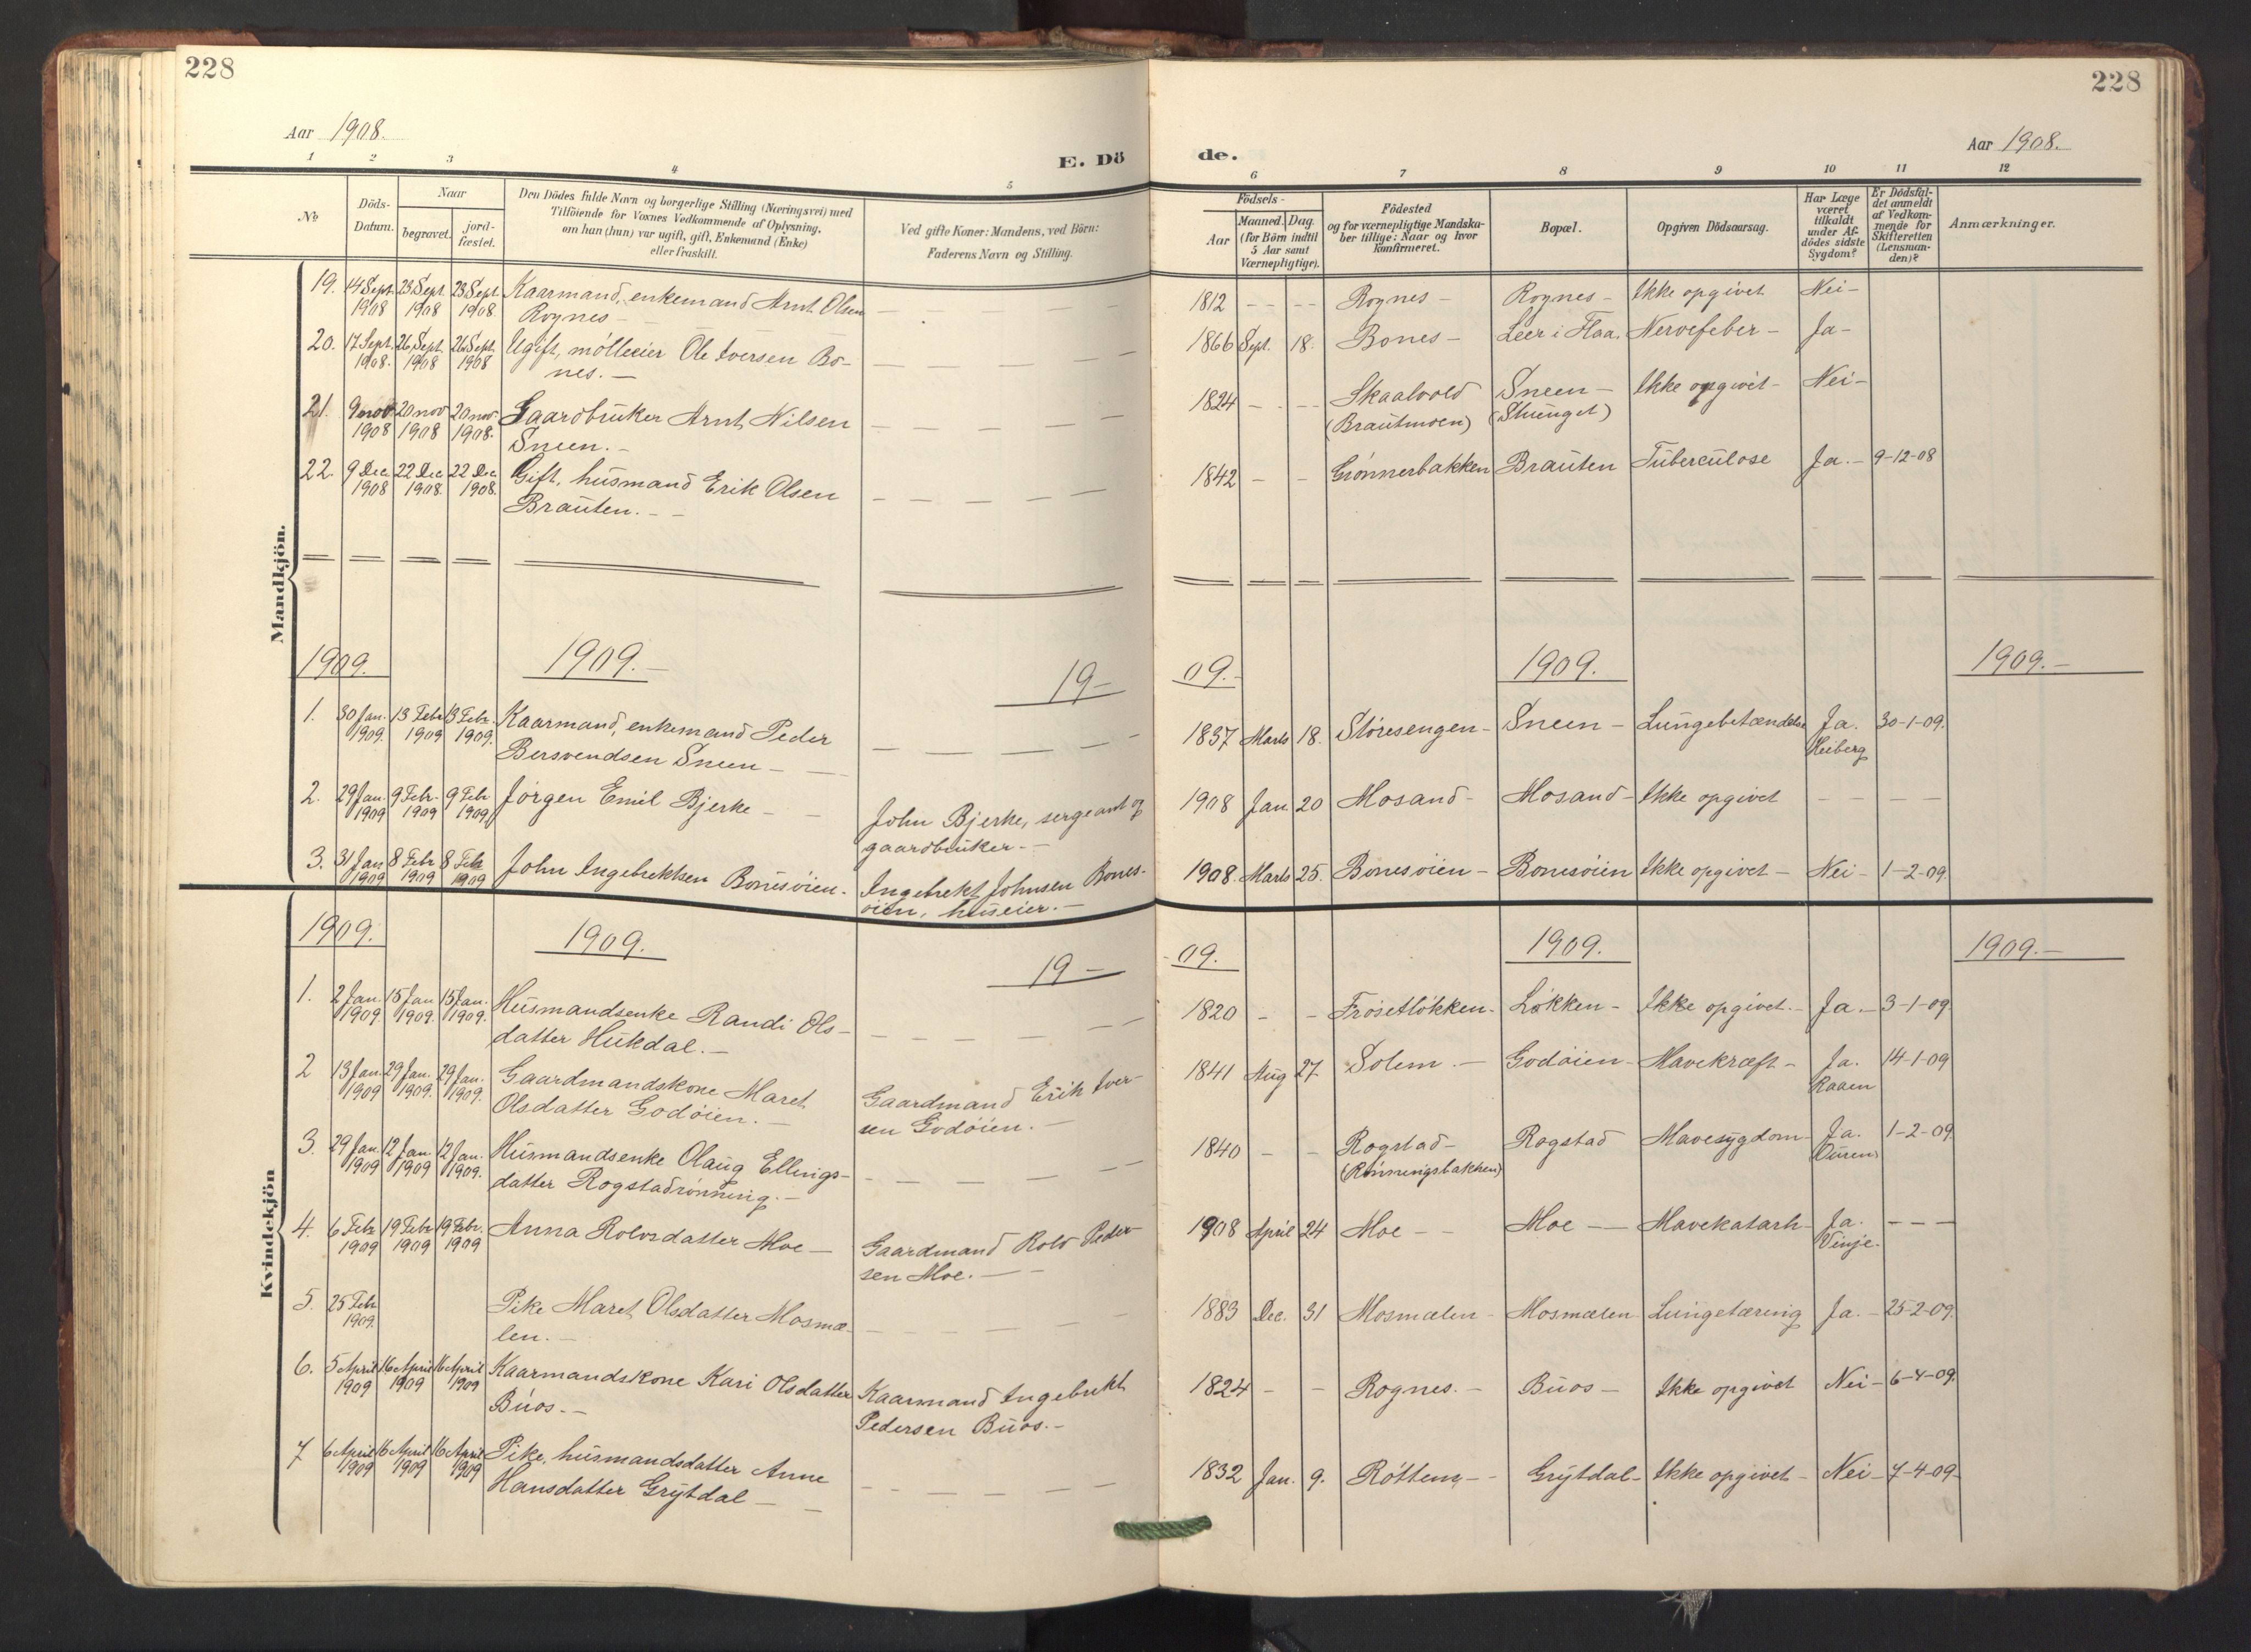 228
228
Aar 1908.
E. Dö de.
Aar 1908.
1 2 3 4 5 6 7 8 9 10 11 12
№
Döds-
Datum.
Naar
begravet.
jord-
fæstet.
Den Dödes fulde Navn og borgerlige Stilling (Næringsvei) med
Tilföiende for Voxnes Vedkommende af Oplysning,
om han (hun) var ugift, gift, Enkemand (Enke)
eller fraskilt.
Ved gifte Koner: Mandens, ved Börn:
Faderens Navn og Stilling.
Födsels-
Aar
Maaned. Dag.
(for Börn indtil
5 Aar samt
Værnepligtige).
Födested
og for værnepligtige Mandska-
ber tillige: Naar og hvor
konfirmeret.
Bopæl.
Opgiven Dödsaarsag.
Har Læge
været
tilkaldt
under Af-
dödes sidste
Sygdom?
Er Dödsfal-
det anmeldt
af Vedkom-
mende for
Skifteretten
(Lensman-
den)?
Anmærkninger.
Mandkjön.
19. 14 Sept. 23 Sept. 23 Sept. Kaarmand, enkemand Arnt Olsen — — — — 1812 - - - - Rognes - Rognes - Ikke opgivet Nei -
1908 1908 1908 Rognes -
20. 17 Sept. 26 Sept. 26 Sept. Ugift, mölleeier Ole Iversen Bo- — — — — 1866 Sept. 18. Bones - Leer i Flaa. Nervefeber - Ja -
1908. 1908 1908 nes. -
21. 9 nov 20 nov 20 nov. Gaardbruker Arnt Nilsen — — — — 1824 - - - Skaalvold Sneen - Ikke opgivet - Nei -
1908 1908 1908. Sneen. - (Brautmoen)
22. 9 Dec 22 Dec 22 Dec. Gift, husmand Erik Olsen — — — — 1842 - - Grönnerbakken Brauten Tuberculose Ja. - 9-12-08
1908 1908. 1908. Brauten. - -
1909. 1909. - 19 - 09. - 1909. 1909. -
1. 30 Jan. 13 Febr 13 Febr. Kaarmand, enkemand Peder — — — — 1837 Marts 18. Störesengen - Sneen - Lungebetændelse Ja. 30-1-09.
1909. 1909 1909. Bersvendsen Sneen - Heiberg
2. 29 Jan. 9 Febr. 9 Febr Jörgen Emil Bjerke - - John Bjerke, sergeant og 1908 Jan 20 Mosand - Mosand - Ikke opgivet - - -
1909 1909 1909. gaardbruker. -
3. 31 Jan 8 Febr 8 Febr John Ingebrektsen Bonesöien. Ingebrekt Johnsen Bones- 1908. Marts 25. Bonesöien - Bonesöien Ikke opgivet - Nei - 1-2-09.
1909 1909 1909 öien, huseier. -
Kvindekjön
1909. 1909. 19 - 09. 1909. 1909. -
1. 2 Jan. 15 Jan 15 Jan. Husmandsenke Randi Ols- — — — — 1820 - - Frösetlökken. Lökken - Ikke opgivet. - Ja. - 3-1-09.
1909. 1909. 1909. datter Hukdal. -
2 13 Jan. 29 Jan. 29 Jan. Gaardmandskone Maret Gaardmand Erik Iver- 1841 Aug 27. Solem. - Godöien - Mavekræft - Ja. 14-1-09
1909 1909. 1909. Olsdatter Godöien. - sen Godöien. - Raaen
3. 29 Jan. 12 Jan. 12 Jan. Husmandsenke Olaug Ellings- — — — — 1840 - - Rogstad - Rogstad Mavesygdom Ja. 1-2-09.
1909 1909 1909. datter Rogstadrönning. - (Rönningsbakken)
4. 6 Febr 19 Febr 19 Febr. Anna Rolvsdatter Moe - Gaardmand Rolv Peder- 1908 April 24 Moe - - Moe - Mavekatarh Ja. - - -
1909 1909 1909 sen Moe. - Vinje.
5. 25 Febr Pike Maret Olsdatter Mosmæ- — — — — 1883 Dec. 31 Mosmælen - Mosmælen Lungetæring Ja. - 25-2-09.
1909. len. -
6. 5 April 16 April 16 April Kaarmandskone Kari Olsdatter Kaarmand Ingebrekt 1824 - - Rognes. - Buos - Ikke opgivet Nei - 6-4-09.
1909 1909 1909 Buos. - Pedersen Buos. -
7 6 April 16 April 16 April Pike, husmandsdatter Anne — — — — 1832 Jan. 9. Röttem - - Grytdal - Ikke opgivet - Nei - 7-4-09
1909 1909 1909 Hansdatter Grytdal -